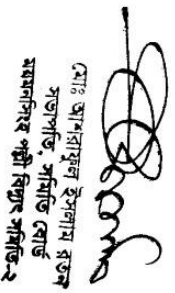 মোঃ আমিরুল ইসলাম রতন
সভাপতি, সমিতি বোর্ড
ময়মনসিংহ পল্লী বিদ্যুৎ সমিতি-২